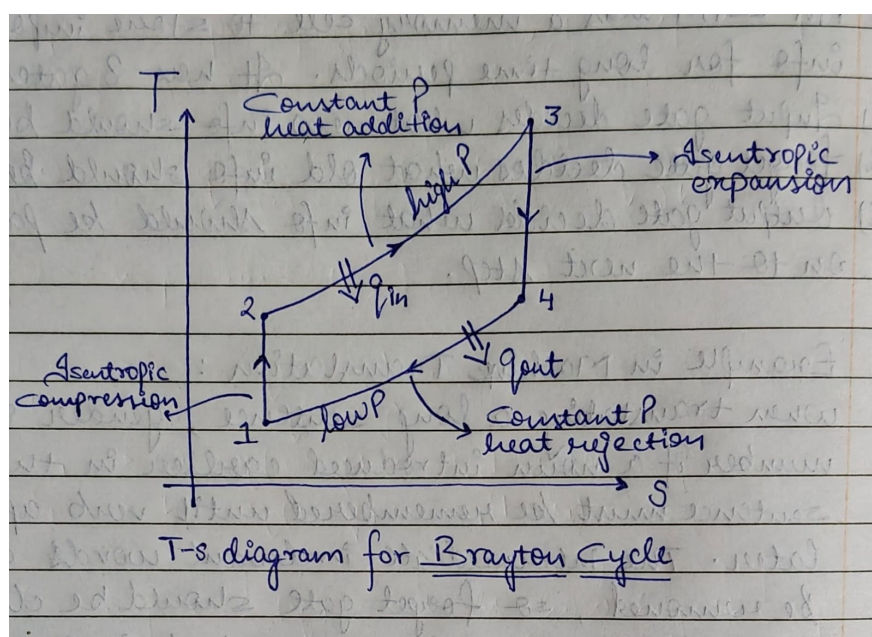 T
Constant P
heat addition
3
high P
Isentropic
expansion
2
qin
4
Isentropic
compression
qout
1
low P
Constant P
heat rejection
S
T-s diagram for Brayton Cycle